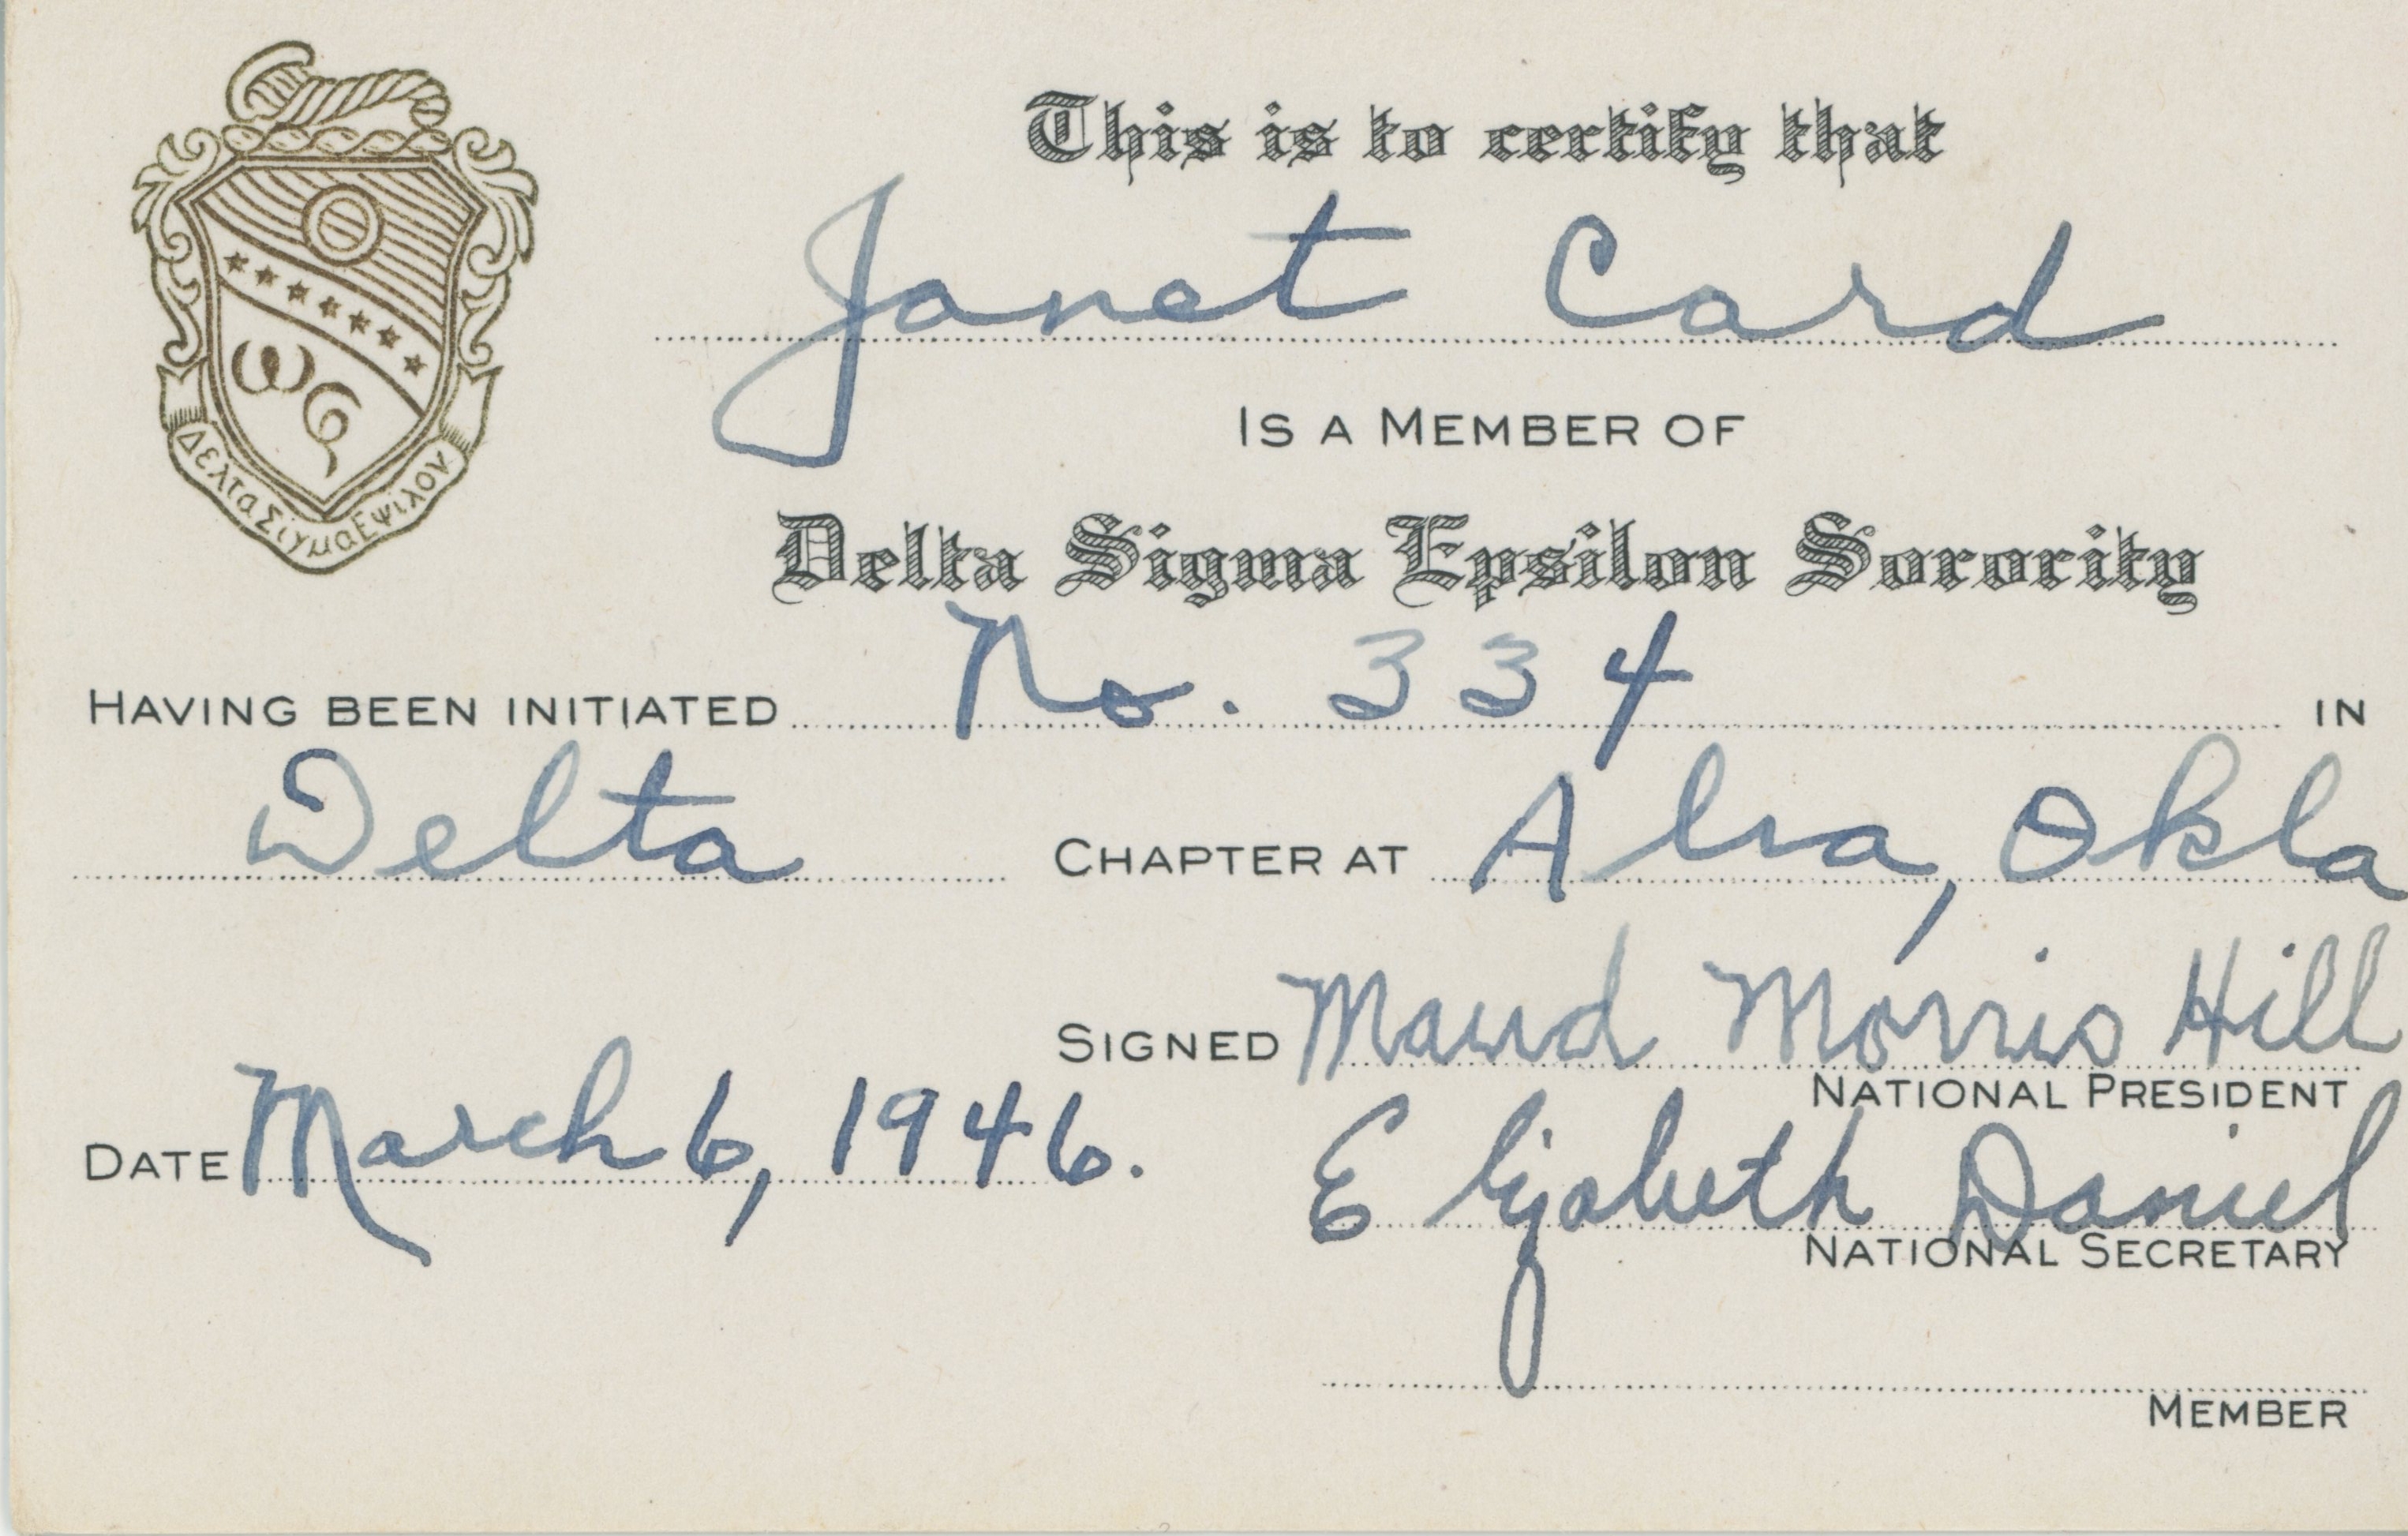 This is to certify that
Janet Card
IS A MEMBER OF
Delta Sigma Epsilon Sorority
HAVING BEEN INITIATED No. 334 IN
Delta CHAPTER AT Alva, Okla
SIGNED Maud Morris Hill
NATIONAL PRESIDENT
DATE March 6, 1946.
Elizabeth Daniel
NATIONAL SECRETARY
MEMBER
ως
Δελτα Σιγμα Εψιλον